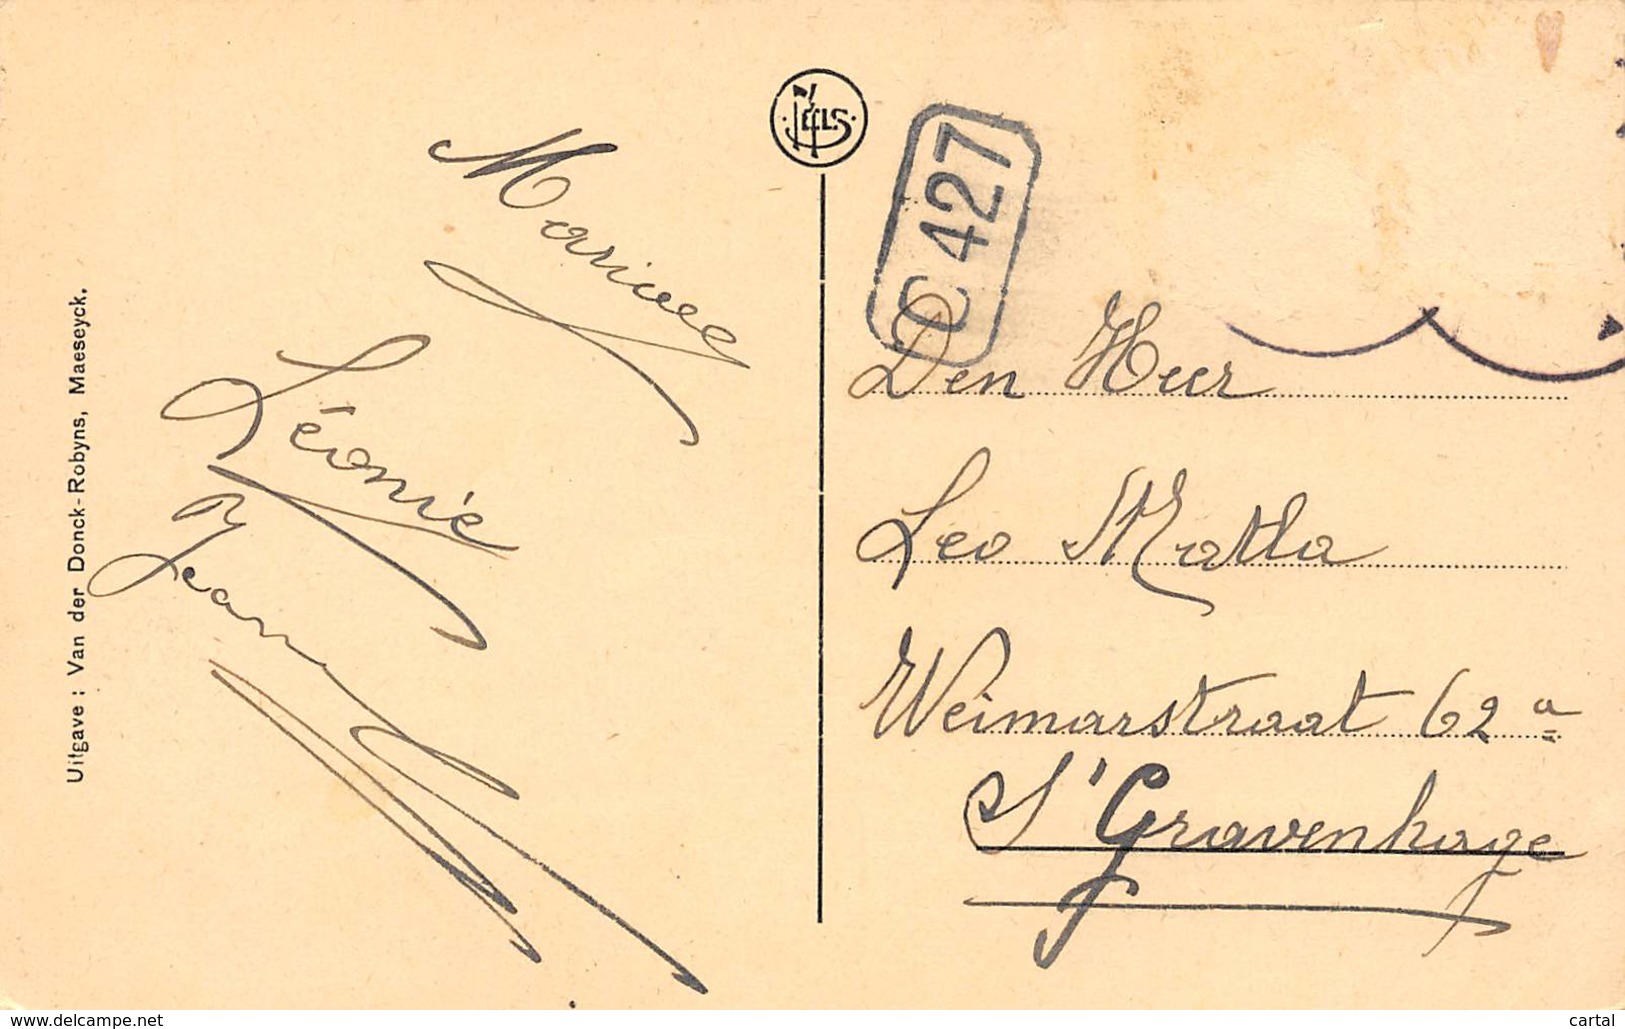 Uitgave : Van der Donck-Robyns, Maeseyck.
Léonie
Jean
NELS
C 427
Den Heer
Leo Matla
Weimarstraat 62 a
S' Gravenhage
www.delcampe.net
cartal